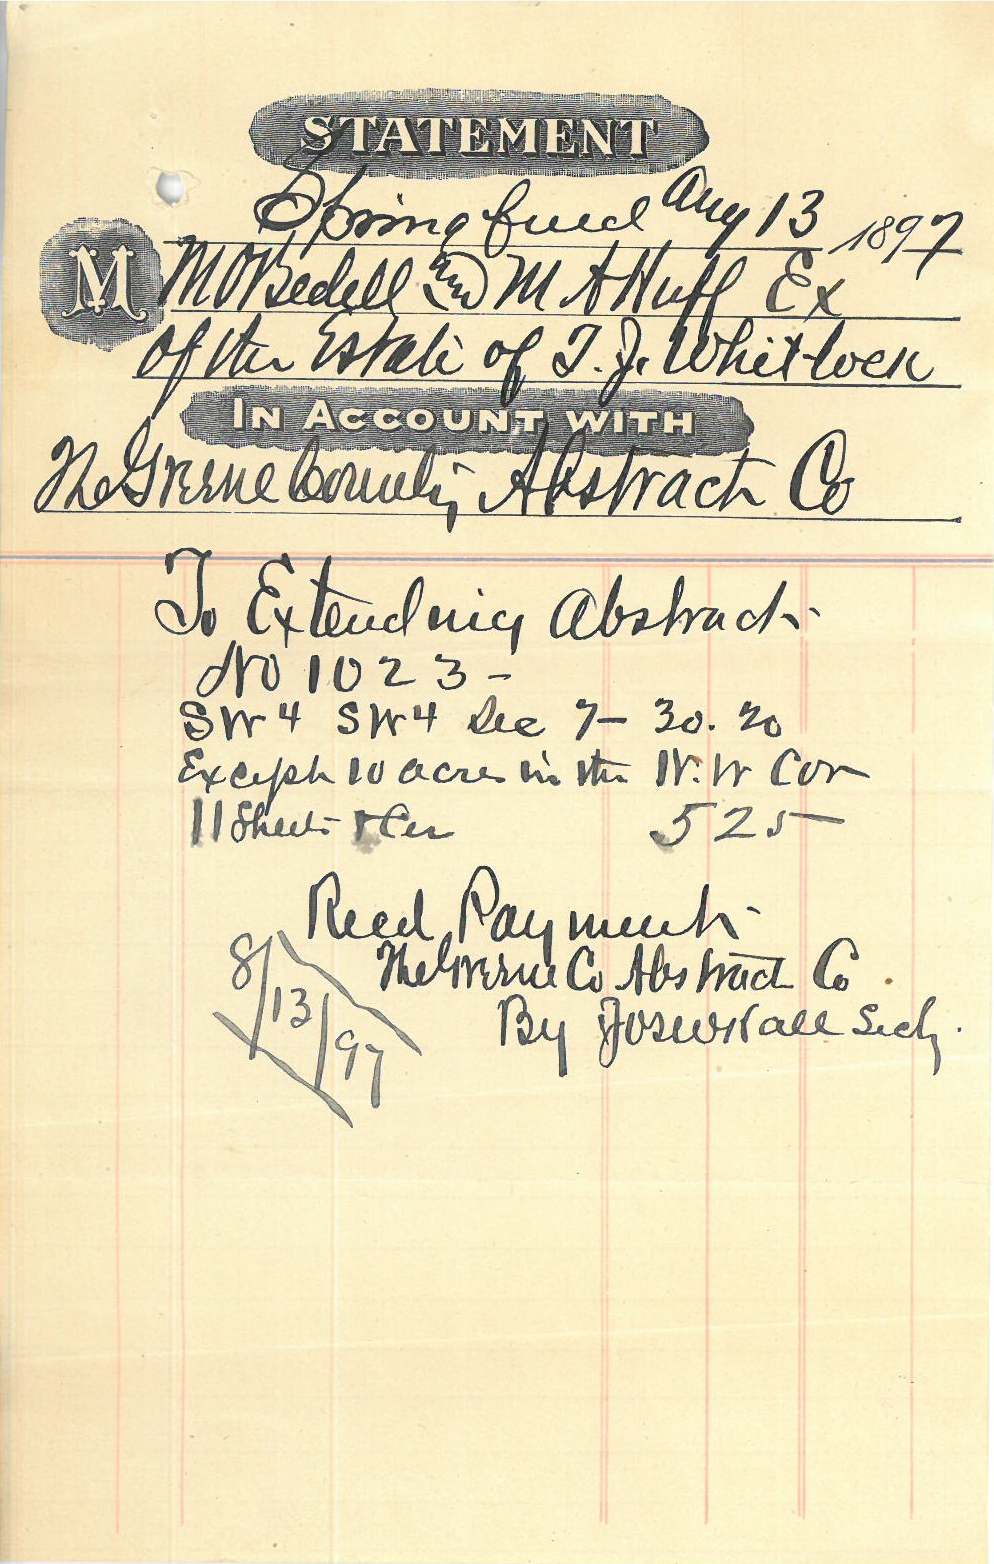 STATEMENT
Springfield Aug 13 1897
M M O Bedell and M A Huff Ex
of the Estate of T. J. Whitlock
IN ACCOUNT WITH
The Greene County Abstract Co
To Extending Abstract
No 1023 -
SW 4 SW 4 Sec 7 - 30. 20
Except 10 acres in the N. W Cor
11 Sheets & Cer 5 25
Recd Payment
The Greene Co Abstract Co
By Secty.
8/13/97